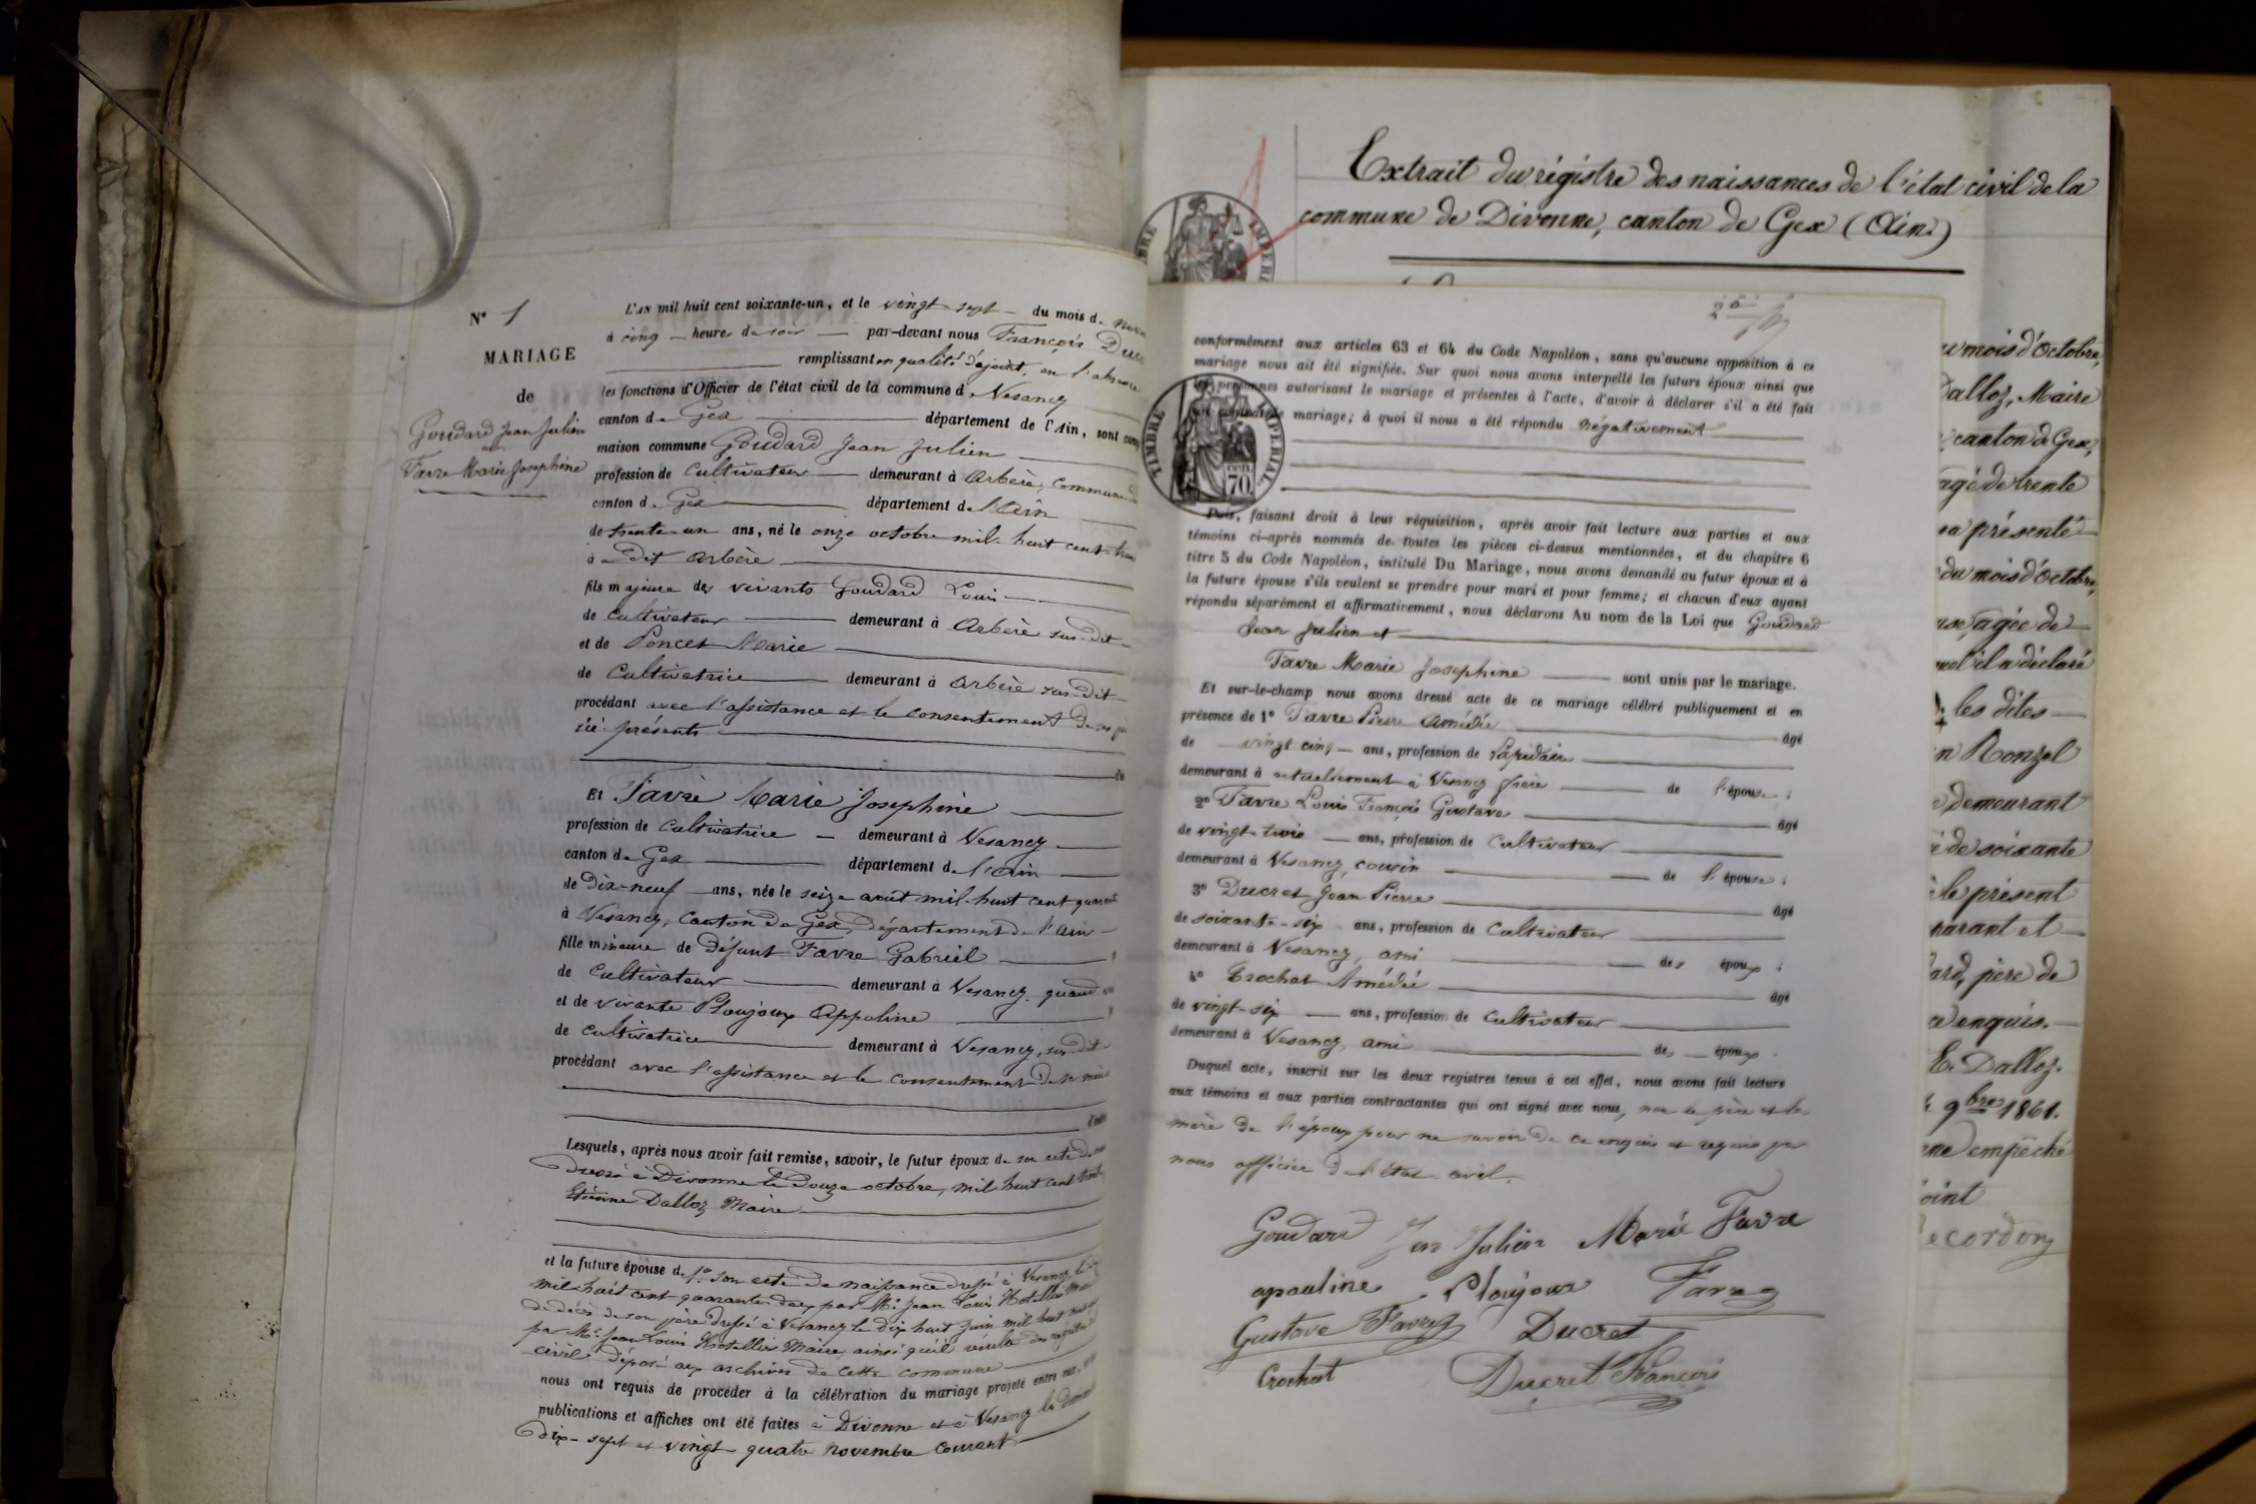 N° 1
MARIAGE
de
Goudard Jean Julien
Favre Marie Josephine
L'AN mil huit cent soixante-un, et le vingt-sept du mois d
à cinq heures du soir par-devant nous François
remplissant en qualité d'ajoint, en l'absence
les fonctions d'Officier de l'état civil de la commune d Vesancy
canton de Gex département de l'Ain, sont
maison commune Goudard Jean Julien
profession de Cultivateur demeurant à Arbère, commune
canton d Gex département de l'Ain
de trente un ans, né le onze octobre mil huit cent
à dit Arbère
fils majeur des vivants Goudard Louis
de Cultivateur demeurant à Arbère sus-dit
et de Poncet Marie
de Cultivatrice demeurant à Arbère sus-dit
procédant avec l'assistance et le consentement de ses
ici présents
Et Favre Marie Josephine
profession de Cultivatrice demeurant à Vesancy
canton de Gex département de l'Ain
de Dix-neuf ans, née le seize août mil huit cent
à Vesancy, Canton de Gex, département de l'Ain
fille mineure de défunt Favre Gabriel
de Cultivateur demeurant à Vesancy, quand
et de vivante Ploujoux Appoline
de Cultivatrice demeurant à Vesancy, sus-dit
procédant avec l'assistance et le consentement de sa mère
Lesquels, après nous avoir fait remise, savoir, le futur époux de son acte de
dressé à Divonne le Douze octobre, mil huit cent
Etienne Dalloz Maire
et la future épouse de 1° son acte de naissance dressé à Vesancy le
mil huit cent quarante deux par Mr. Jean Louis Hotellier
de décès de son père dressé à Vesancy le dix huit Juin mil huit
par Mr. Jean Louis Hotellier Maire, ainsi qu'il résulte des
civil déposé aux archives de cette commune
nous ont requis de procéder à la célébration du mariage projeté entre
publications et affiches ont été faites à Divonne et à Vesancy les
dix-sept et vingt quatre novembre courant
Extrait du régistre des naissances de l'état civil de la
commune de Divonne, canton de Gex (Ain)
TIMBRE IMPERIAL
70
conformément aux articles 63 et 64 du Code Napoléon, sans qu'aucune opposition à ce
mariage nous ait été signifiée. Sur quoi nous avons interpellé les futurs époux ainsi que
les personnes autorisant le mariage et présentes à l'acte, d'avoir à déclarer s'il a été fait
mariage; à quoi il nous a été répondu négativement
Puis, faisant droit à leur réquisition, après avoir fait lecture aux parties et aux
témoins ci-après nommés de toutes les pièces ci-dessus mentionnées, et du chapitre 6
titre 5 du Code Napoléon, intitulé Du Mariage, nous avons demandé au futur époux et à
la future épouse s'ils veulent se prendre pour mari et pour femme; et chacun d'eux ayant
répondu séparément et affirmativement, nous déclarons Au nom de la Loi que Goudard
Jean Julien et
Favre Marie Josephine sont unis par le mariage.
Et sur-le-champ nous avons dressé acte de ce mariage célébré publiquement et en
présence de 1° Favre Pierre Amédée âgé
de vingt-cinq ans, profession de Lapidaire
demeurant à actuellement à Vesancy frère de l'épouse;
2° Favre Louis François Gustave âgé
de vingt-trois ans, profession de Cultivateur
demeurant à Vesancy, cousin de l'épouse;
3° Ducret Jean Pierre âgé
de soixante-six ans, profession de Cultivateur
demeurant à Vesancy, ami des époux;
4° Crochat Amédée âgé
de vingt-six ans, profession de Cultivateur
demeurant à Vesancy, ami des époux
Duquel acte, inscrit sur les deux registres tenus à cet effet, nous avons fait lecture
aux témoins et aux parties contractantes qui ont signé avec nous, non le père et la
mère de l'époux pour ne savoir de ce enquis et requis par
nous officier de l'état civil.
Goudard Jean Julien Marie Favre
apauline Ploujoux Favre
Gustave Favre Ducret
Crochat Ducret François
mois d'Octobre,
Dalloz, Maire
canton de Gex,
agé de trente
a présenté
du mois d'Octobre,
agée de
il a déclaré
les dites
Ronzel
demeurant
de soixante
le présent
parant et
père de
enquis.
E. Dalloz.
9bre 1861.
empêché